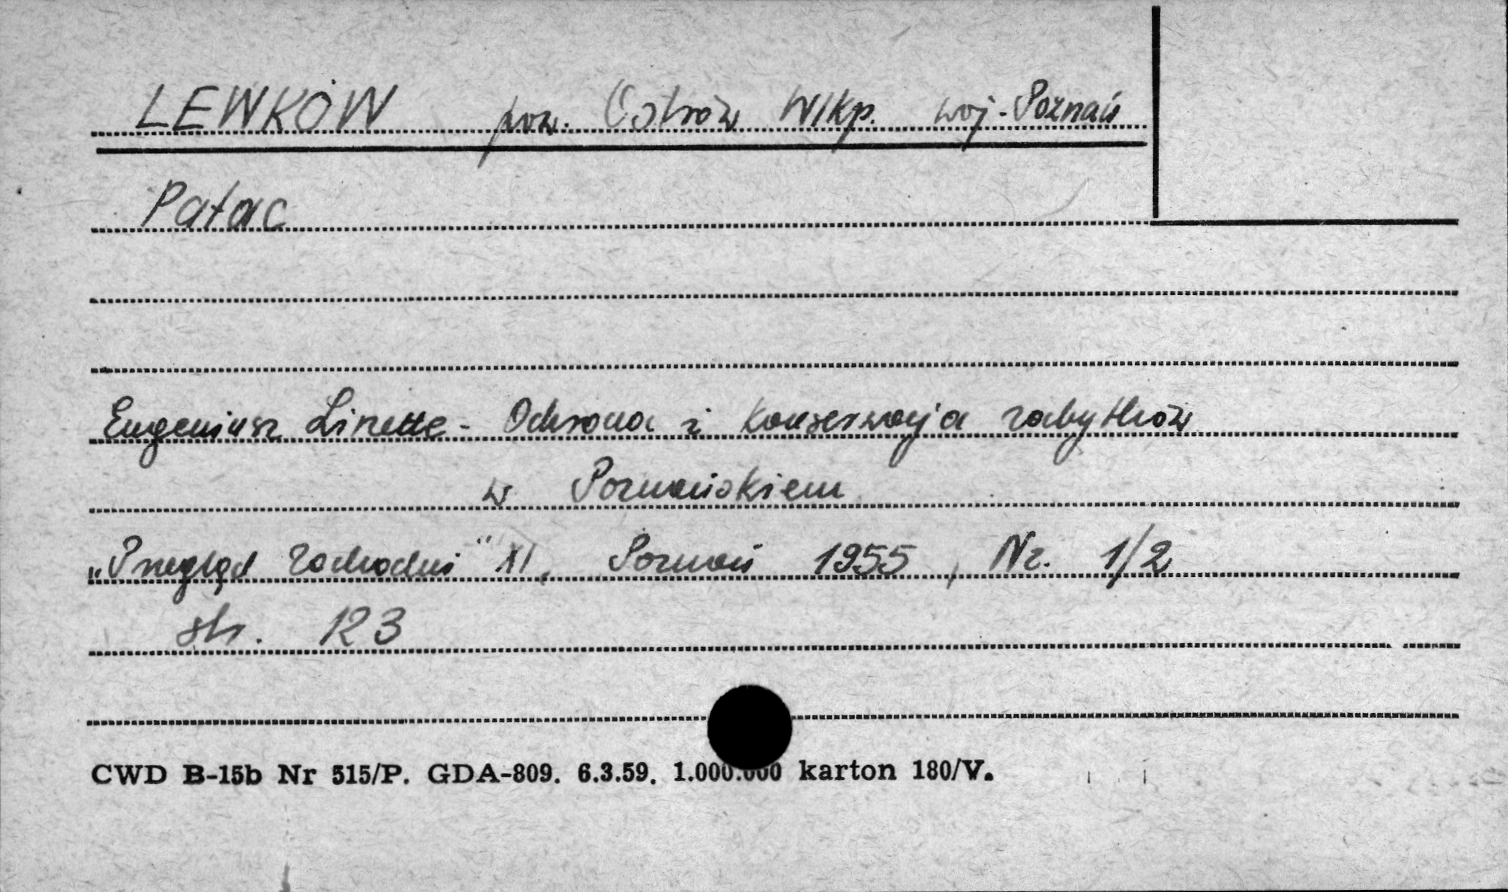 LEWKÓW pow. Ostrów Wlkp. woj. Poznań
Pałac
Eugeniusz Linette - Ochrona i konserwacja zabytków
w Poznańskiem
„Przegląd Zachodni" XI, Poznań 1955, Nr. 1/2
str. 123
CWD B-15b Nr 515/P. GDA-809. 6.3.59. 1.000.000 karton 180/V.